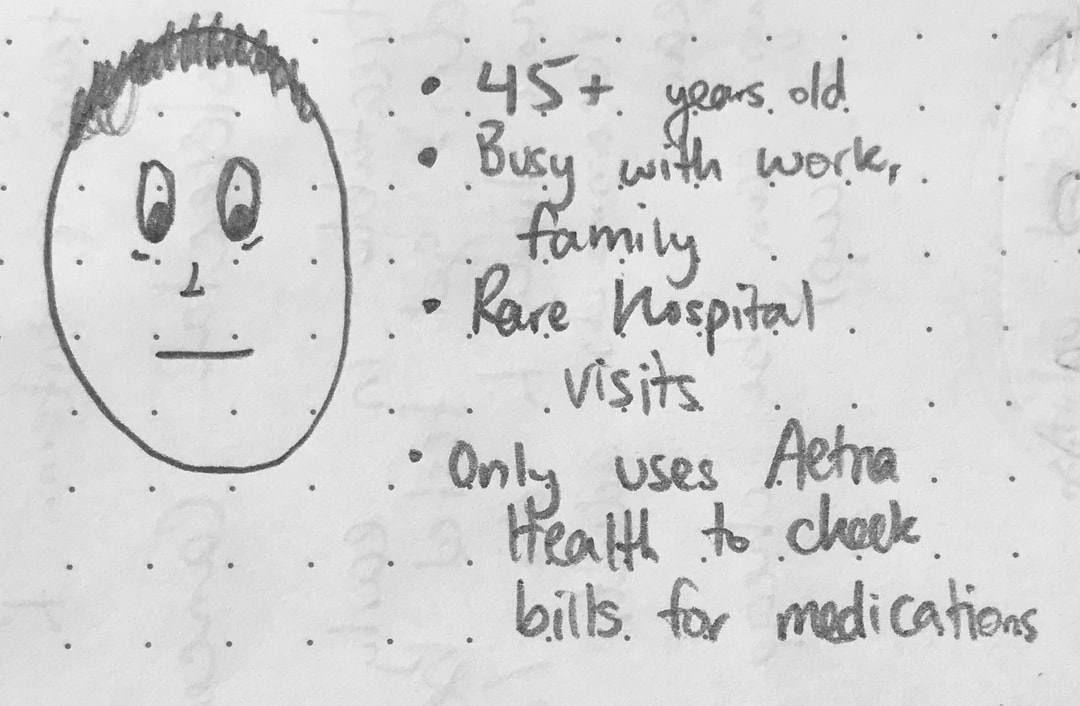 • 45+ years old
• Busy with work,
family
• Rare Hospital
visits
• Only uses Aetna
Health to check
bills for medications